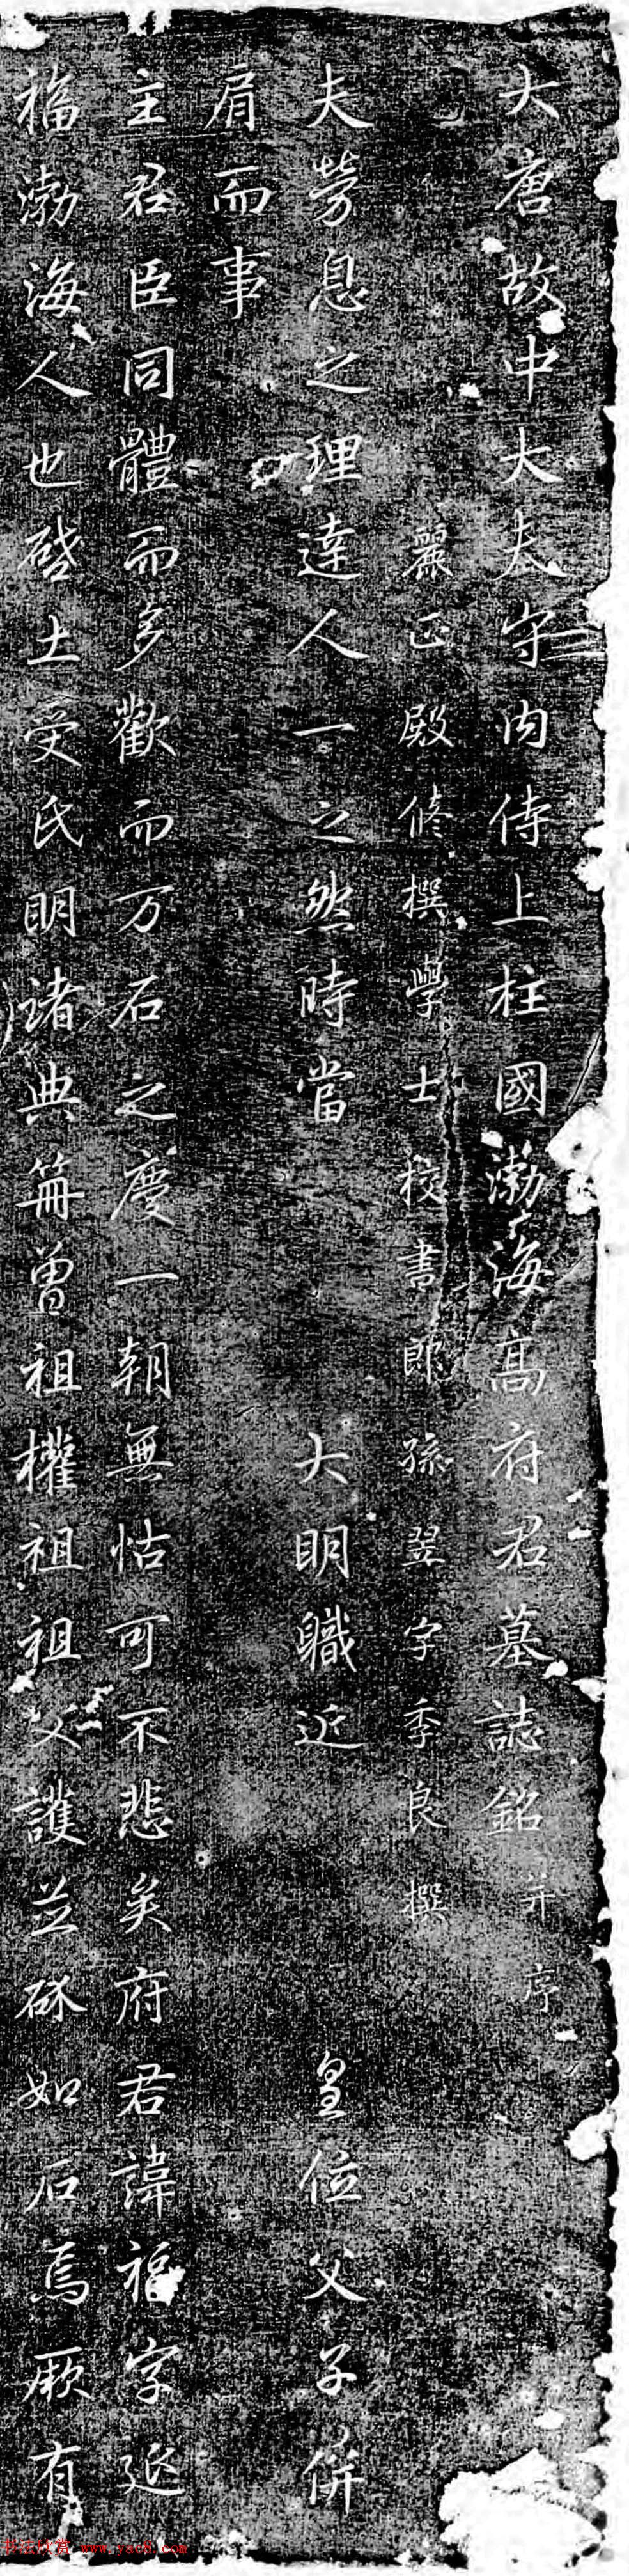 大唐故中大夫守内侍上柱國渤海高府君墓誌銘并序
麗正殿修撰學士校書郎孫翌字季良撰
夫勞息之理達人一之然時當大明職近皇位父子併
肩而事
主君臣同體而多歡而万石之慶一朝無怙可不悲矣府君諱福字延
福渤海人也啓土受氏明諸典冊曾祖權祖祖父護並硕如石焉厥有
书法欣赏 www.yac8.com